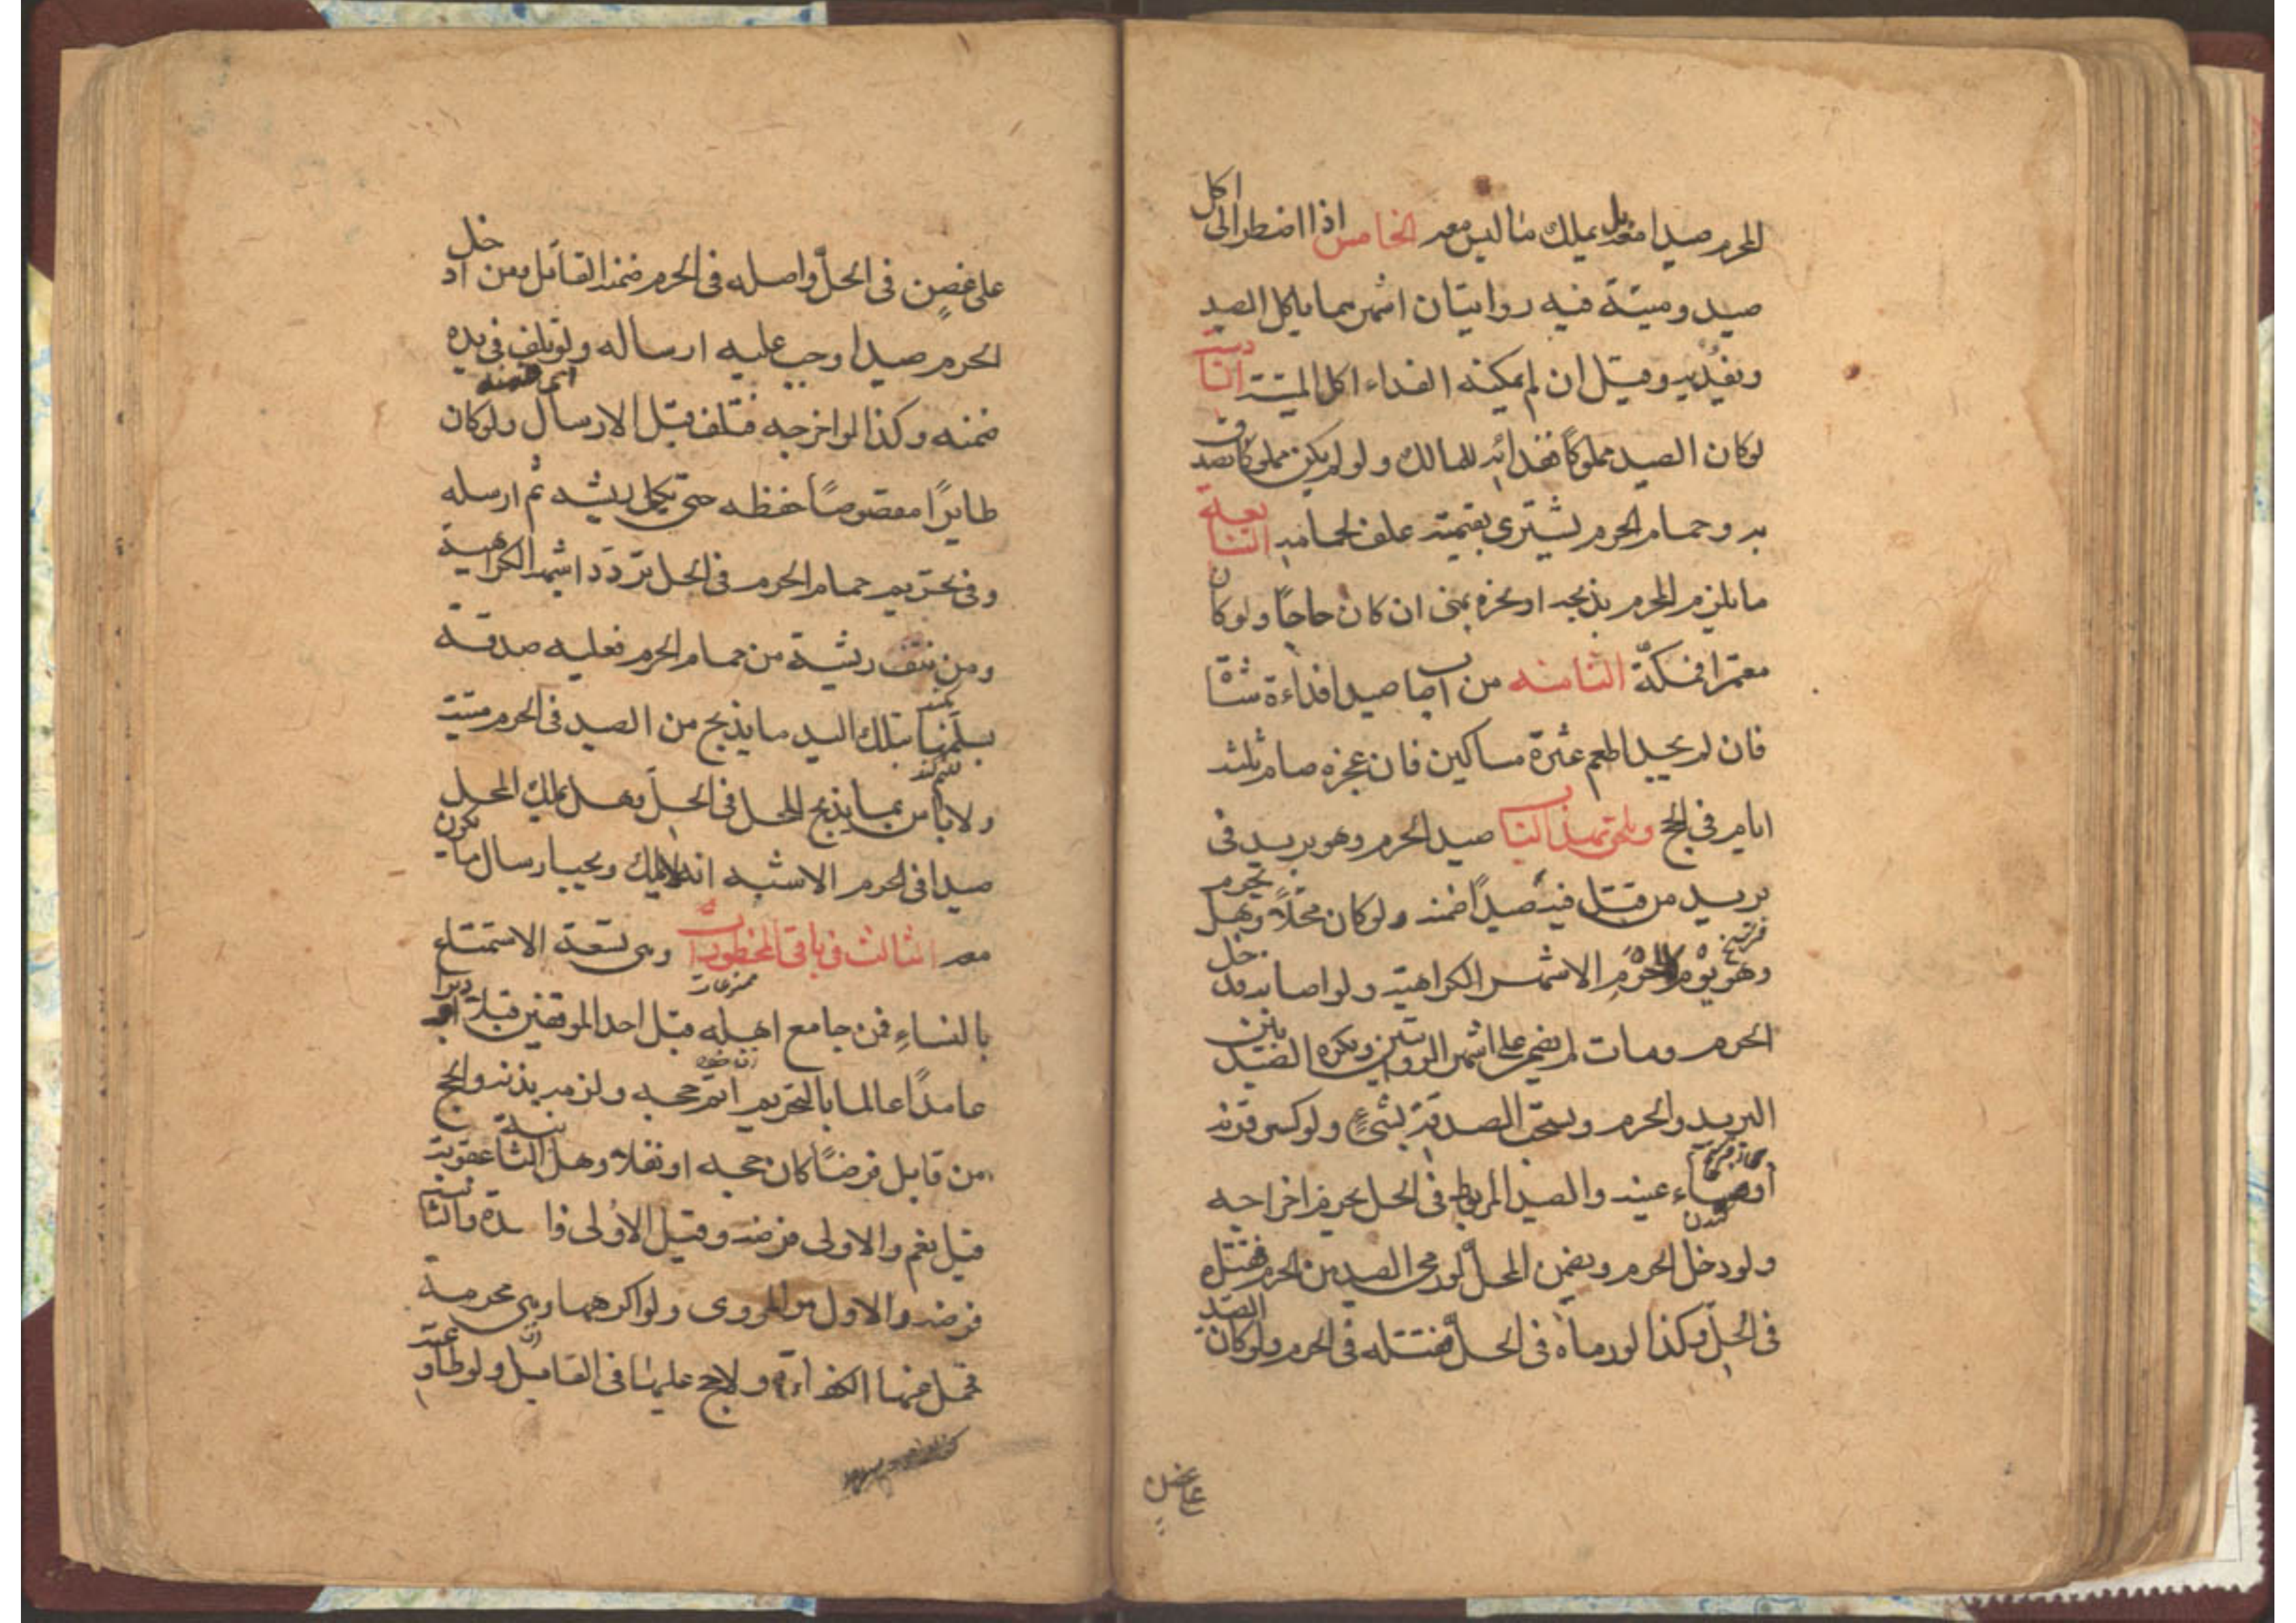 المحرم صيدا معه بل يملك ما ليس معه الخامس اذا اضطر الى اكل
صيد وميتة فيه روايتان اشهرهما ياكل الصيد
ويفديه وقيل ان لم يمكنه الفداء اكل الميتة السادسة
لوكان الصيد مملوكًا ففداؤه للمالك ولو لم يكن مملوكا تصدق
به وحمام الحرم يشترى بقيمته علف لحمامه السابعة
ما يلزم المحرم يذبحه او ينحره بمنى ان كان حاجا ولو كان
معتمرا فبمكّة الثامنه من اصاب صيدا فداءه شاة
فان لم يجد اطعم عشرة مساكين فان عجز صام ثلثة
ايام فى الحج ويلحق بهذا الباب صيد الحرم وهو بريد فى
بريد من قتل فيه صيدًا ضمنه ولو كان محلًا وهل يحرم
وهو يؤم الحرم الاشهر الكراهية ولو اصابه فدخل
الحرم ومات لم يضمن على اشهر الروايتين ويكره الصيد بين
البريد والحرم ويستحب الصدقة بشىءٍ ولو كسر قرنه
او فقاء عينه والصيد المربوط فى الحل يحرم اخراجه
ولو دخل الحرم ويضمن المحلّ لو رمى الصيد من الحرم فقتله
فى الحلّ وكذا لو رماه فى الحلّ فقتله فى الحرم ولو كان الصيد
على غصن
على غصنٍ فى الحلّ واصله فى الحرم ضمنه القاتل ومن ادخل
الحرم صيدا وجب عليه ارساله ولو تلف فى يده
ضمنه وكذا لو اخرجه فتلف قبل الارسال ولو كان
طايرًا مقصوصًا حفظه حتى يكمل ريشه ثم ارسله
وفى تحريم حمام الحرم فى الحل تردّد اشبهه الكراهية
ومن نتف ريشة من حمام الحرم فعليه صدقة
يسلّمها بتلك اليد ما يذبح من الصيد فى الحرم ميتة
ولا باس بما يذبح المحل فى الحلّ وهل يملك المحل
صيدا فى الحرم الاشبه انه لا يملك ويجب ارسال ما يكون
معه الثالث فى باقى المحظورات وهى تسعة الاستمتاع
بالنساءِ فمن جامع اهله قبل احد الموقفين قبلا او دبرا
عامدًا عالما بالتحريم اتمّ حجه ولزمه بدنة والحج
من قابل فرضًا كان حجه او نفلا وهل الثانية عقوبة
قيل نعم والاولى فرضه وقيل الاولى فاسدة والثانية
فرضه والاول هو المروى ولو اكرهها وهى محرمة
تحمل عنها الكفارة ولا حج عليها فى القابل ولو طاوعته